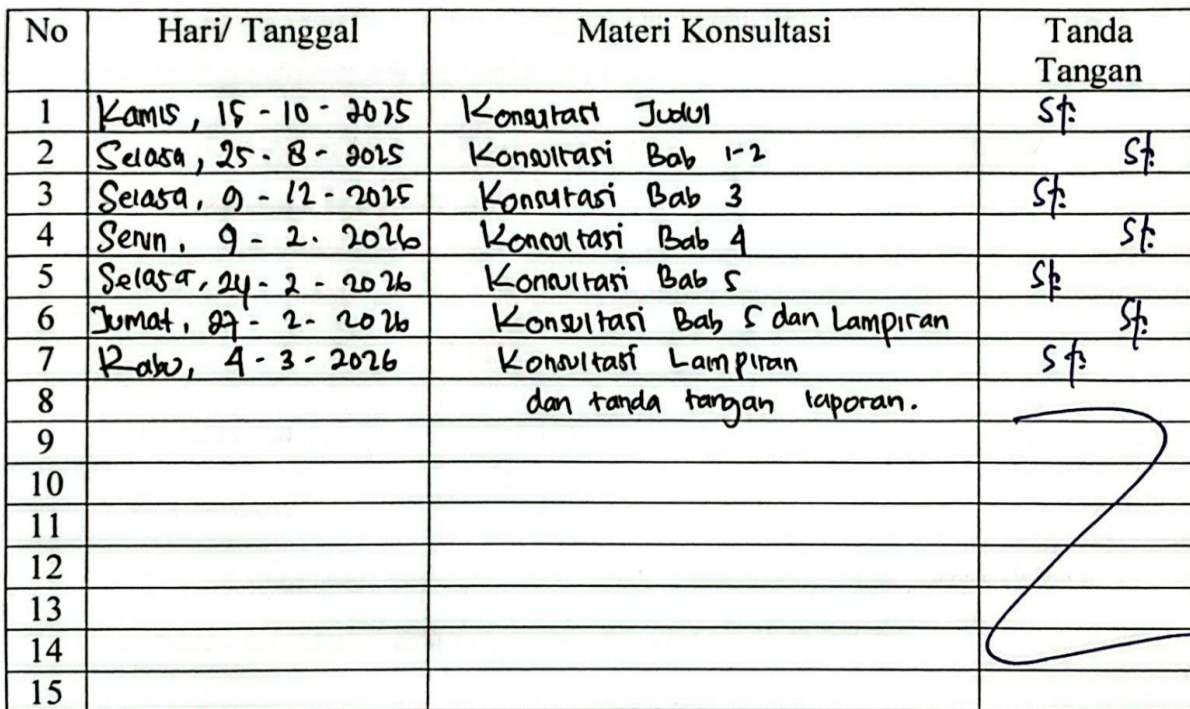 No Hari/ Tanggal Materi Konsultasi Tanda Tangan
1 Kamis, 15 - 10 - 2025 Konsultasi Judul
2 Selasa, 25 - 8 - 2025 Konsultasi Bab 1-2
3 Selasa, 9 - 12 - 2025 Konsultasi Bab 3
4 Senin, 9 - 2 - 2026 Konsultasi Bab 4
5 Selasa, 24 - 2 - 2026 Konsultasi Bab 5
6 Jumat, 27 - 2 - 2026 Konsultasi Bab 5 dan Lampiran
7 Rabu, 4 - 3 - 2026 Konsultasi Lampiran
8 dan tanda tangan laporan.
9
10
11
12
13
14
15